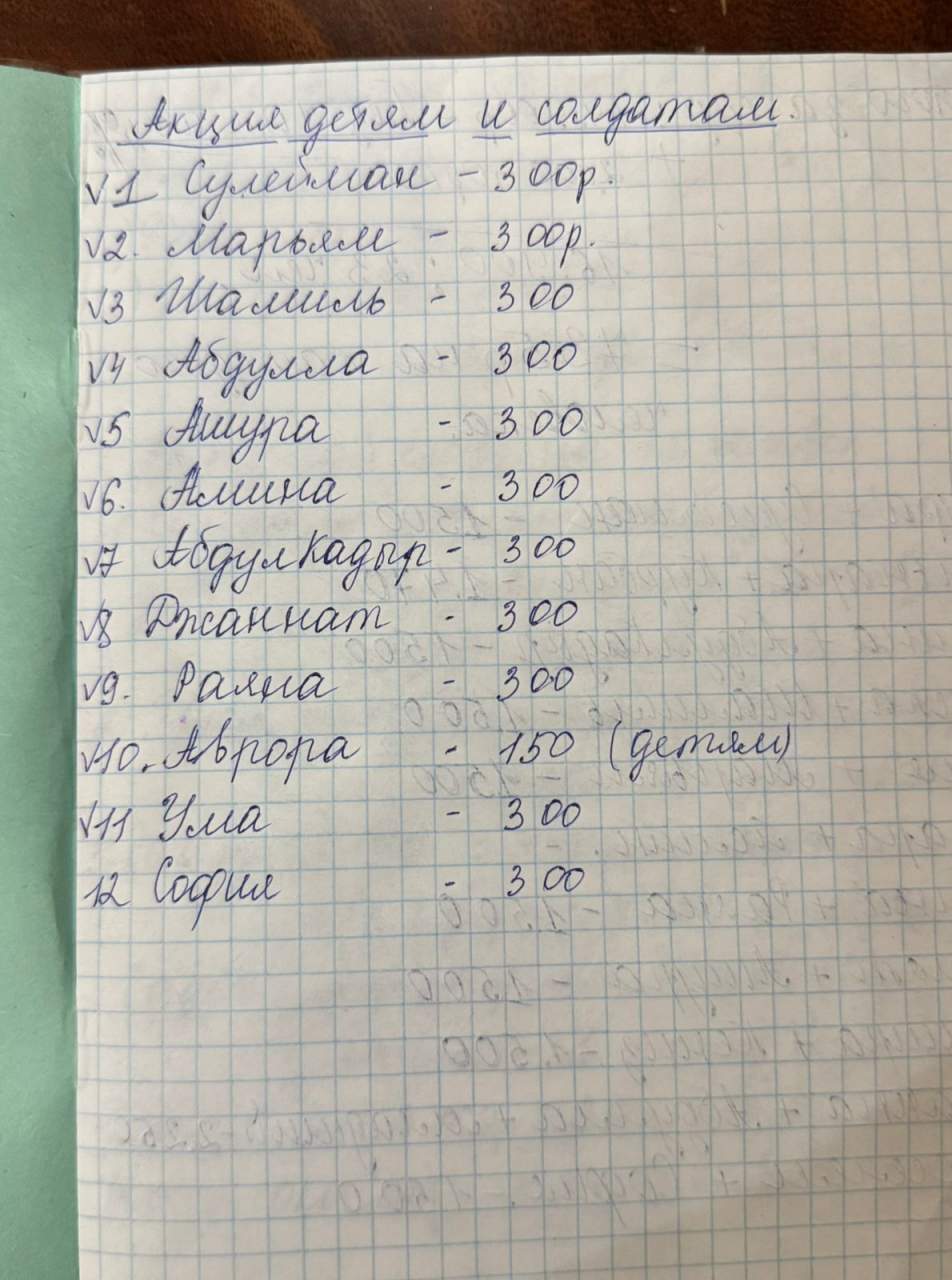 Акция детям и солдатам.
√1 Сулейман - 300р.
√2. Марьям - 300р.
√3 Шамиль - 300
√4 Абдулла - 300
√5 Ашура - 300
√6. Амина - 300
√7 АбдулКадыр - 300
√8 Джаннат - 300
√9. Раяна - 300
√10. Аврора - 150 (детям)
√11 Ума - 300
12 София - 300